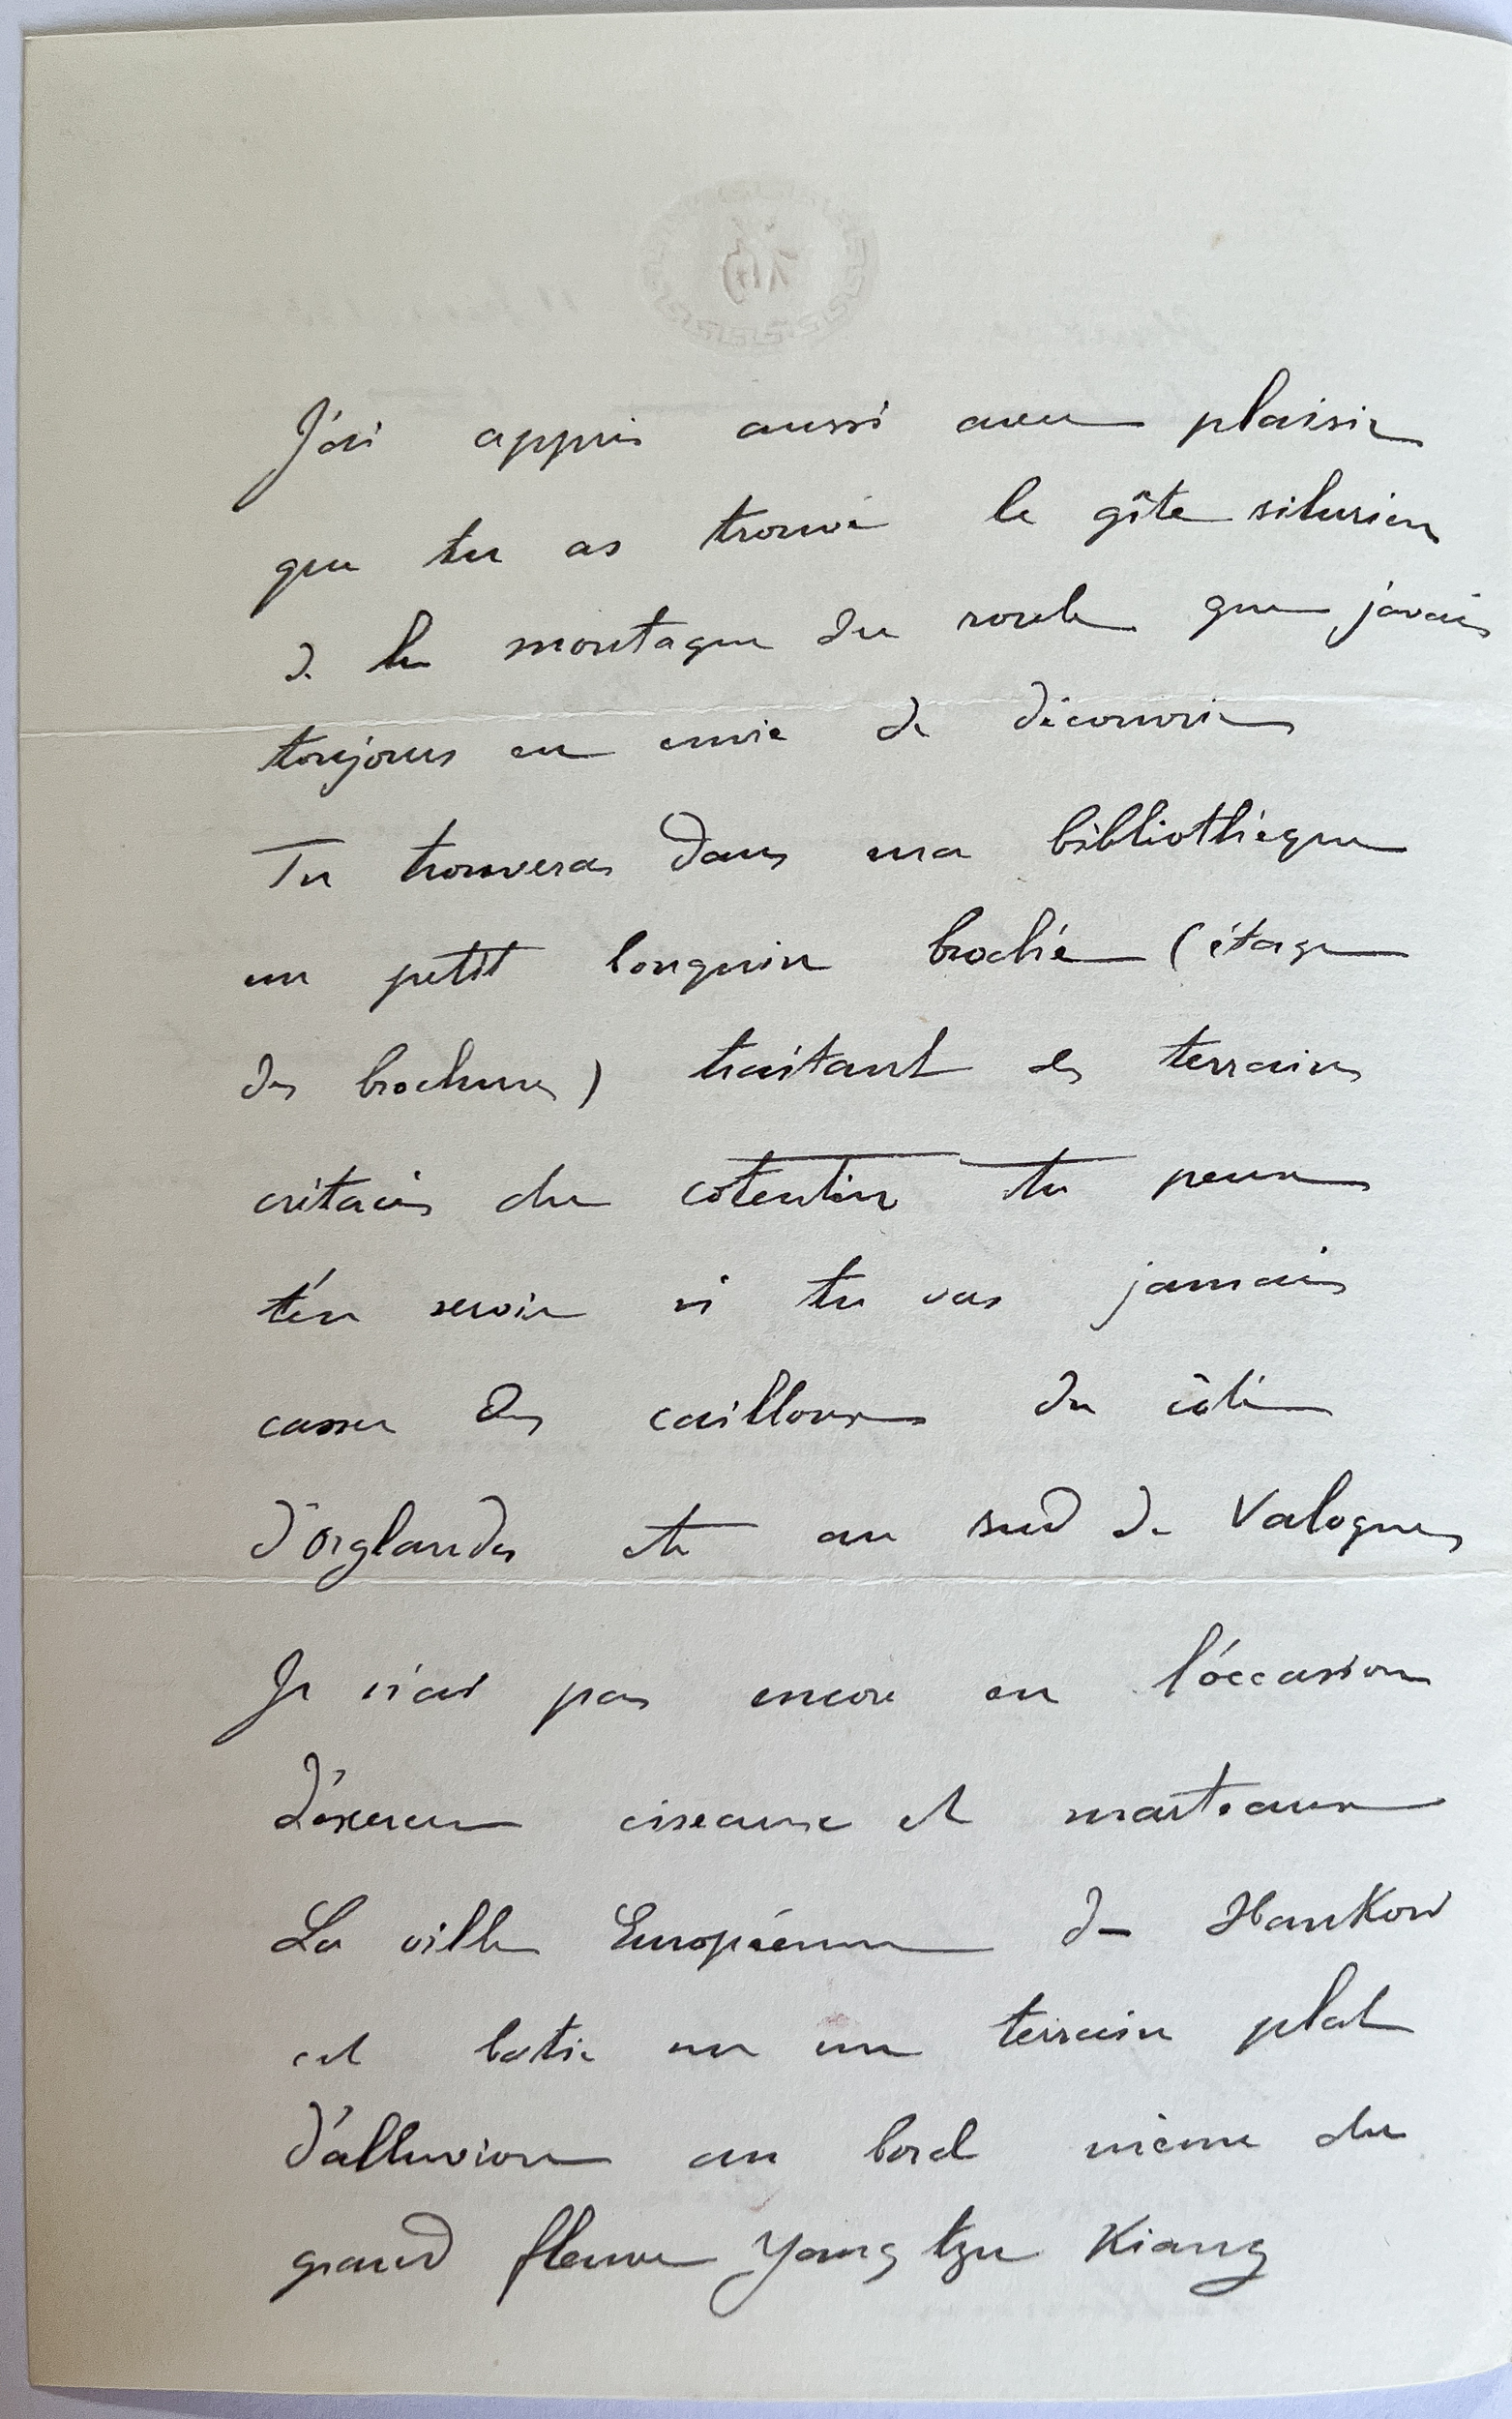 J'ai appris aussi avec plaisir
que tu as trouvé le gîte silurien
de la montagne du roule que j'avais
toujours eu envie de découvrir
Tu trouveras dans ma bibliothèque
un petit bouquin broché (étage
des brochures) traitant des terrains
crétacés du cotentin tu peux
t'en servir si tu vas jamais
casser des cailloux du côté
d'Orglandes etc au sud de Valognes
Je n'ai pas encore eu l'occasion
d'exercer ciseaux et marteaux
La ville Européenne de Hankow
est batie sur un terrain plat
d'alluvions au bord même du
grand fleuve Yang tzu Kiang